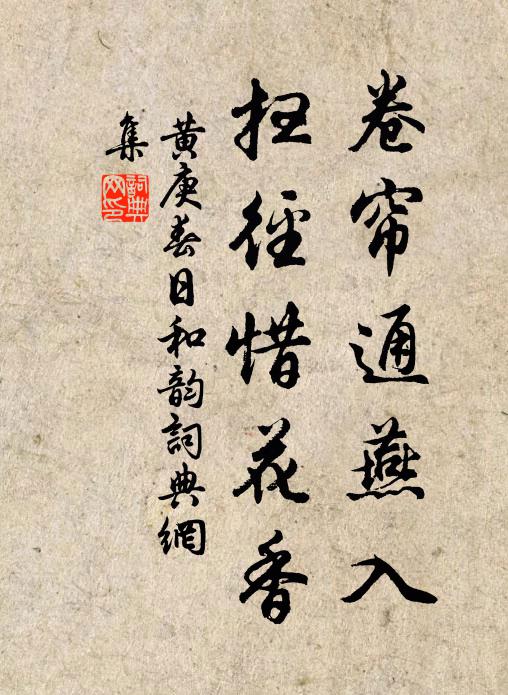 卷帘通燕入
扫径惜花香
黄庚春日和韵词典網
集
詞典
网印